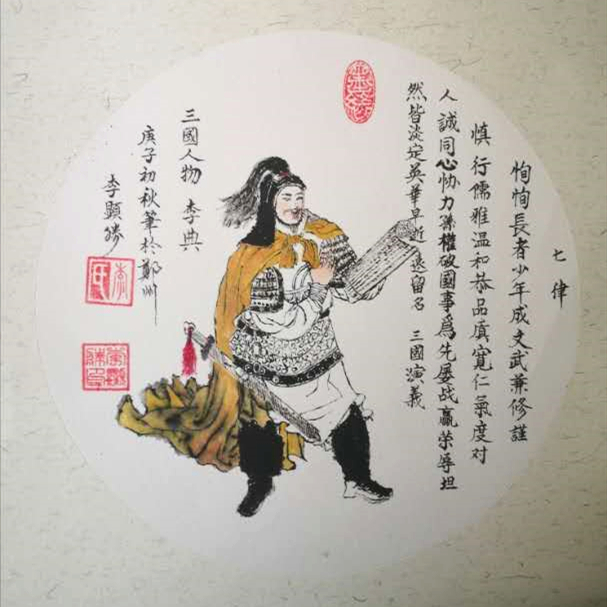 七律
恂恂長者少年成文武兼修謹
慎行儒雅温和恭品质寬仁氣度对
人誠同心协力孫權破國事爲先屡战赢荣辱坦
然皆淡定英華早逝遠留名 三國演義
三國人物 李典
庚子初秋筆於鄭州
李顯勝
李氏